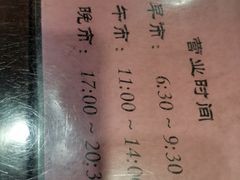 营业时间
早市: 6:30~9:30
午市: 11:00~14:0
晚市: 17:00~20:3